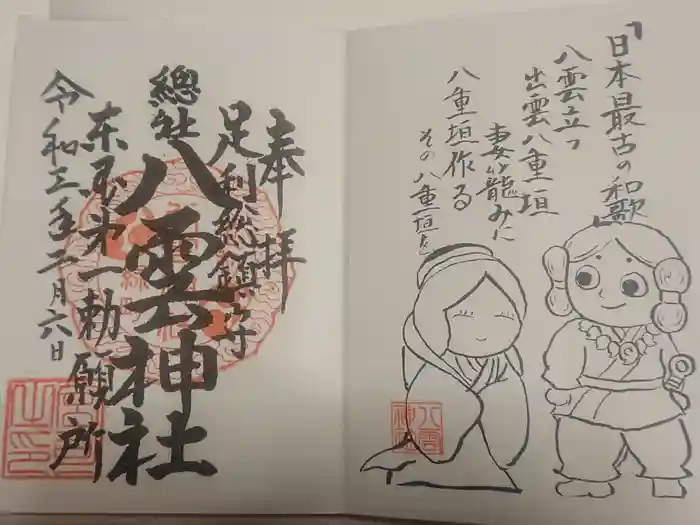 「日本最古の和歌」
八雲立つ
出雲八重垣
妻籠みに
八重垣作る
その八重垣を
八雲神社
奉拝
足利総鎮守
總社八雲神社
東国第一勅願所
令和三年二月六日
宮司之印